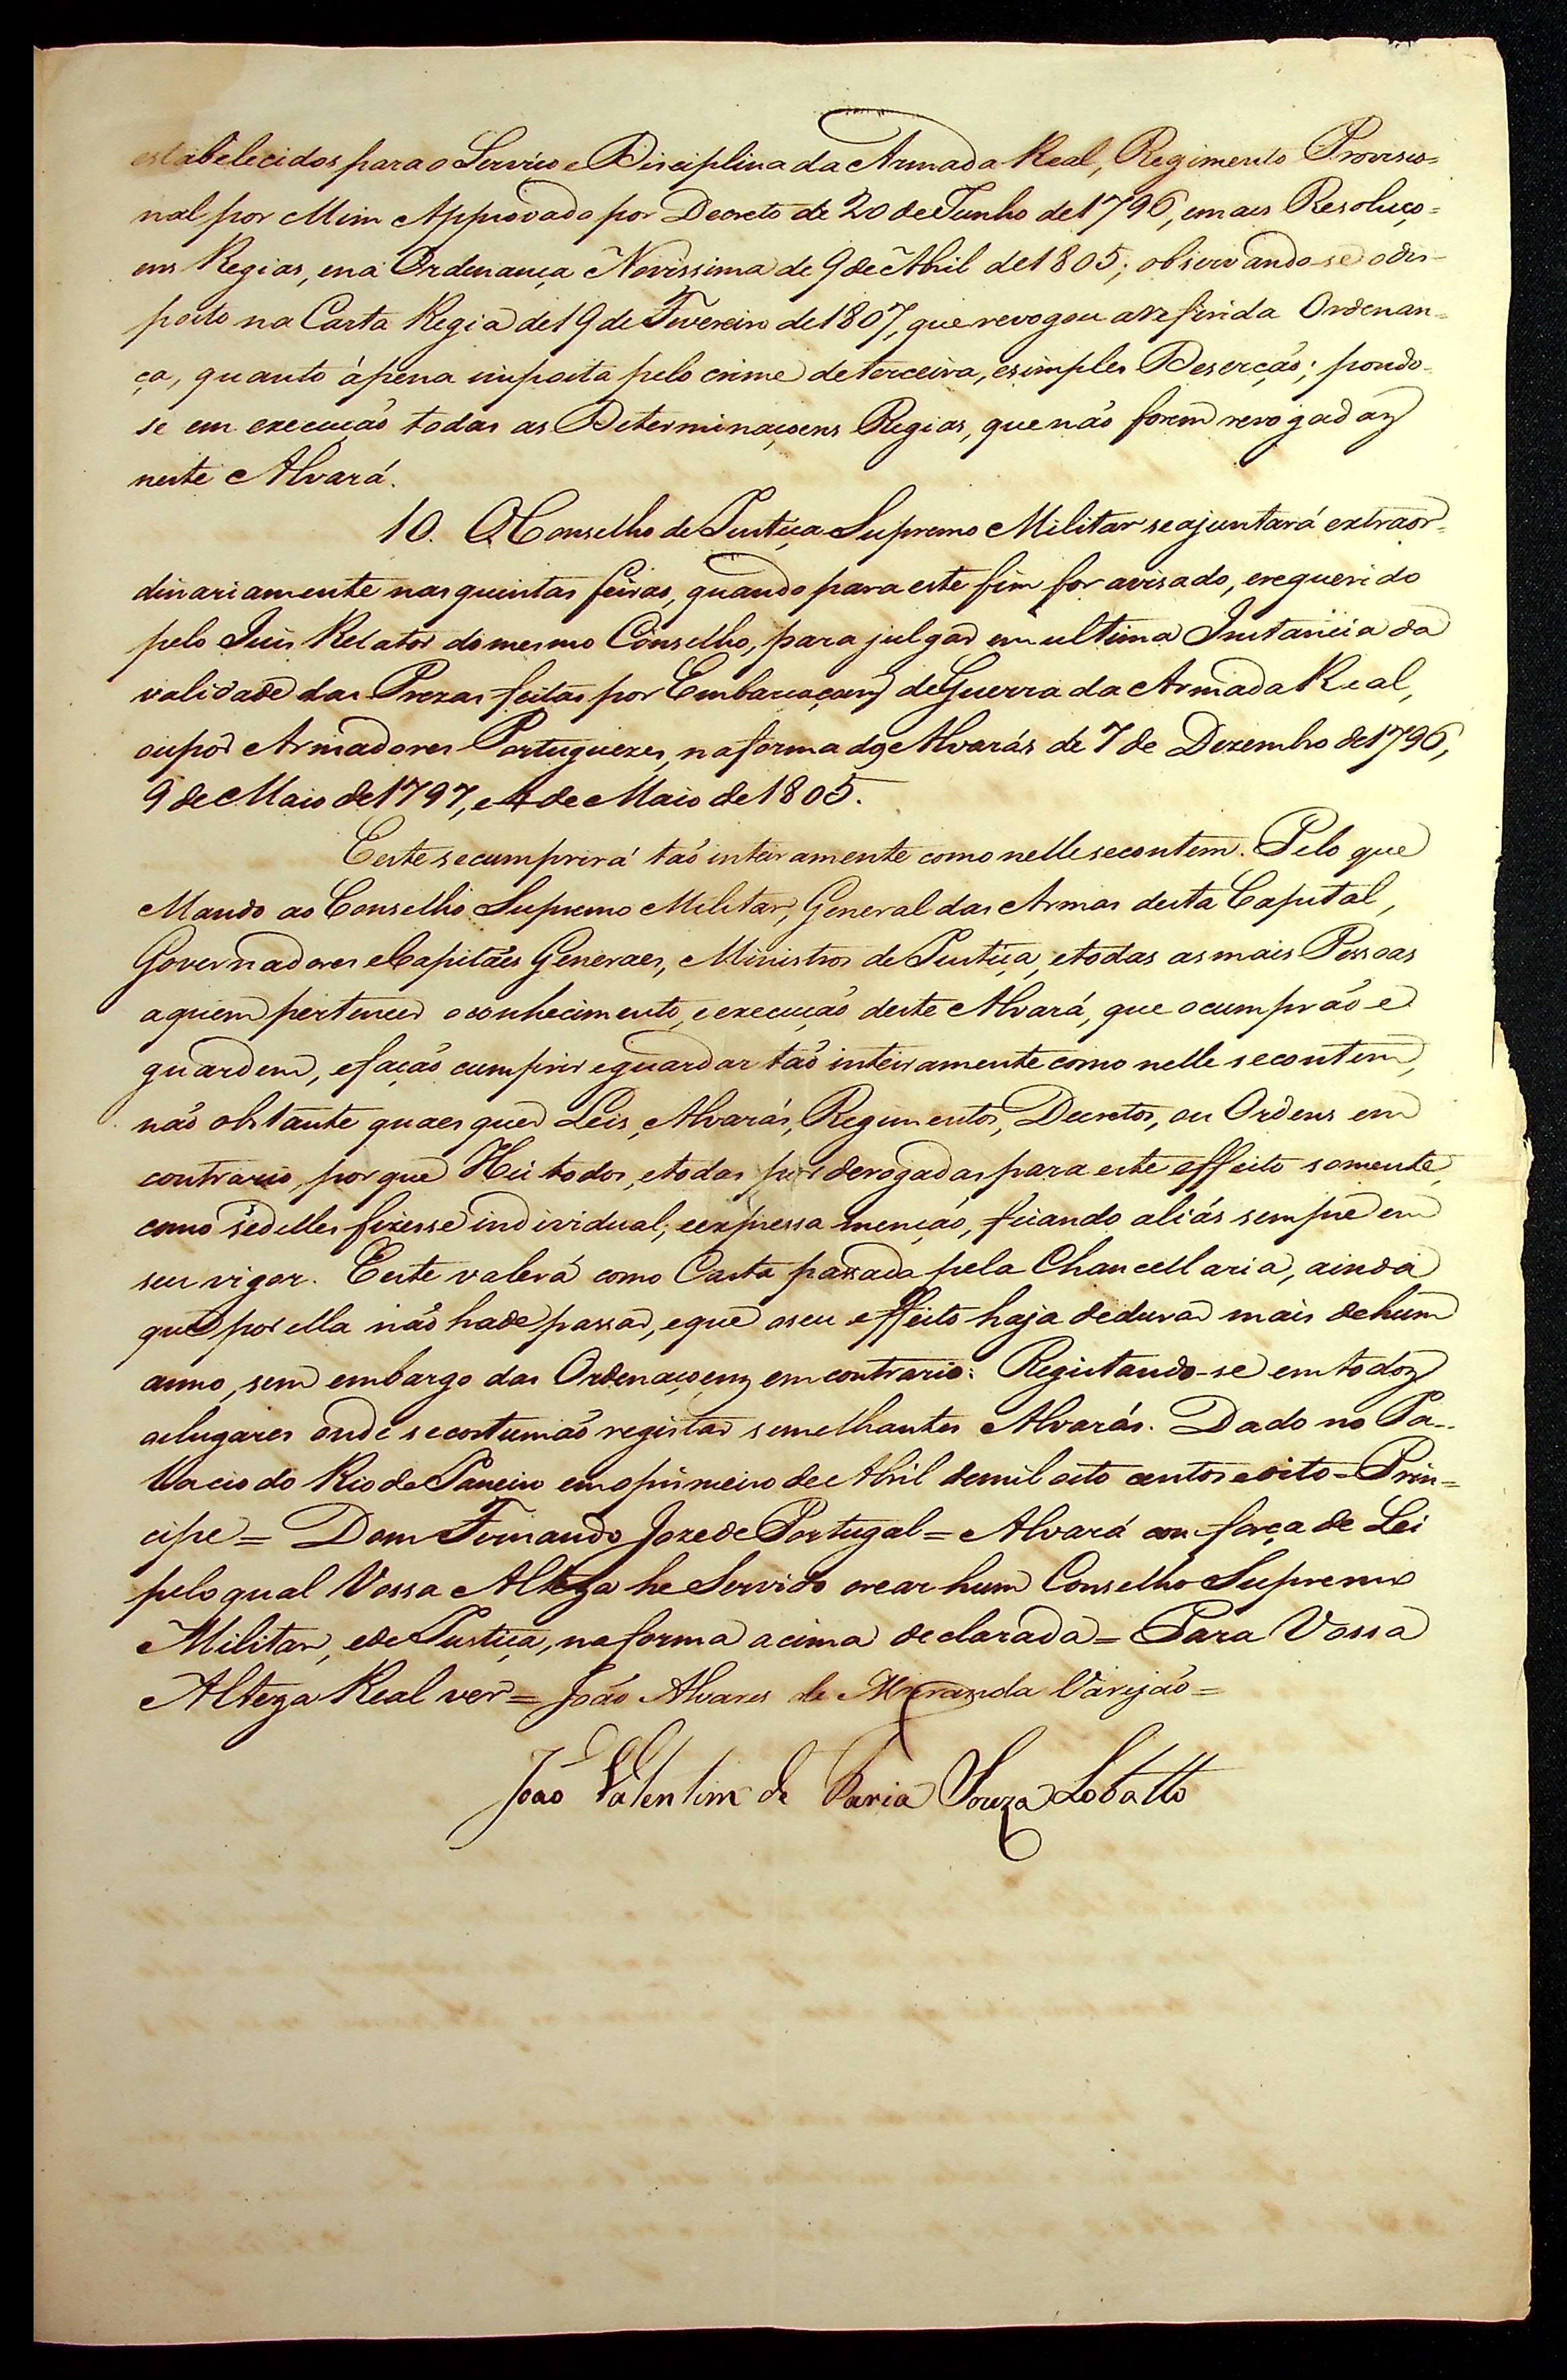 estabelecidos para o Serviço e Disciplina da Armada Real, Regimento Proviso=
nal por Mim Approvado por Decreto de 20 de Junho de 1796, e mais Resoluço=
ens Regias, e na Ordenança Novissima de 9 de Abril de 1805; observando-se o dis-
posto na Carta Regia de 19 de Fevereiro de 1807, que revogou a referida Ordenan=
ça, quanto á pena imposta pelo crime de terceira, e simples Deserção; pondo-
se em execução todas as Determinaçoens Regias, que não forem revogadas
neste Alvará.
10. O Conselho de Justiça Supremo Militar se ajuntará extraor=
dinariamente nas quintas feiras, quando para este fim for avisado, e requerido
pelo Juis Relator do mesmo Conselho, para julgar em ultima Instancia da
validade das Prezas feitas por Embarcaçoens de Guerra da Armada Real,
ou por Armadores Portuguezes, na forma dos Alvarás de 7 de Dezembro de 1796,
9 de Maio de 1797, e 4 de Maio de 1805.
E este se cumprirá tão inteiramente como nelle se contem. Pelo que
Mando ao Conselho Supremo Militar, General das Armas desta Capital,
Governadores e Capitães Generaes, Ministros de Justiça, e todas as mais Pessoas
a quem pertencer o conhecimento, e execução deste Alvará, que o cumprão e
guardem, e fação cumprir e guardar tão inteiramente como nelle se contem,
não obstante quaesquer Leis, Alvarás, Regimentos, Decretos, ou Ordens em
contrario, porque Hei todos, e todas por derogadas para este effeito somente,
como se delles fizesse individual, e expressa menção, ficando aliás sempre em
seu vigor. E este valerá como Carta passada pela Chancellaria, ainda
que por ella não hade passar, e que o seu effeito haja de durar mais de hum
anno, sem embargo das Ordenaçoens em contrario: Registando-se em todos
os lugares onde se costumão registar semelhantes Alvarás. Dado no Pa-
lacio do Rio de Janeiro em o primeiro de Abril de mil oito centos e oito = Prin=
cipe = Dom Fernando Joze de Portugal = Alvará com força de Lei
pelo qual Vossa Alteza he Servido crear hum Conselho Supremo
Militar, e de Justiça, na forma acima declarada = Para Vossa
Alteza Real ver = João Alvares de Miranda Varejão =
João Valentim de Faria Souza Lobatto